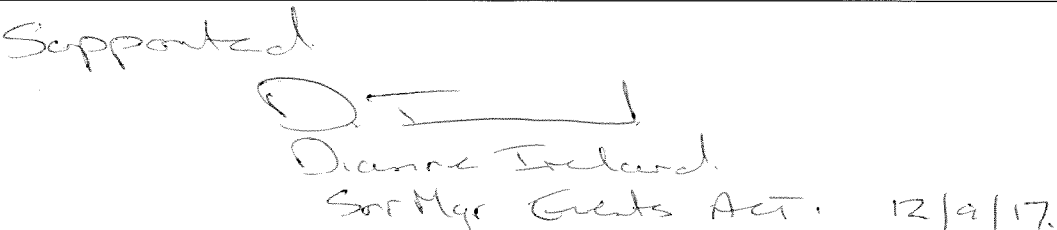 Supported
D. I
Dianne Ireland.
Snr Mgr Events ACT. 12/9/17.